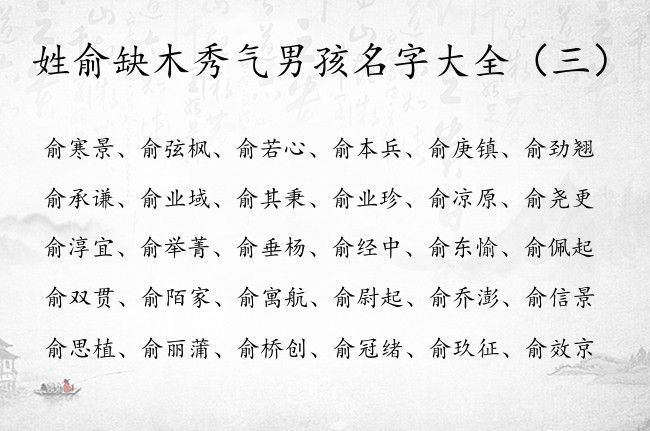 姓俞缺木秀气男孩名字大全（三）
俞寒景、俞弦枫、俞若心、俞本兵、俞庚镇、俞劲翘
俞承谦、俞业域、俞其秉、俞业珍、俞凉原、俞尧更
俞淳宜、俞举菁、俞垂杨、俞经中、俞东愉、俞佩起
俞双贯、俞陌家、俞寓航、俞尉起、俞乔澎、俞信景
俞思植、俞丽蒲、俞桥创、俞冠绪、俞玖征、俞效京